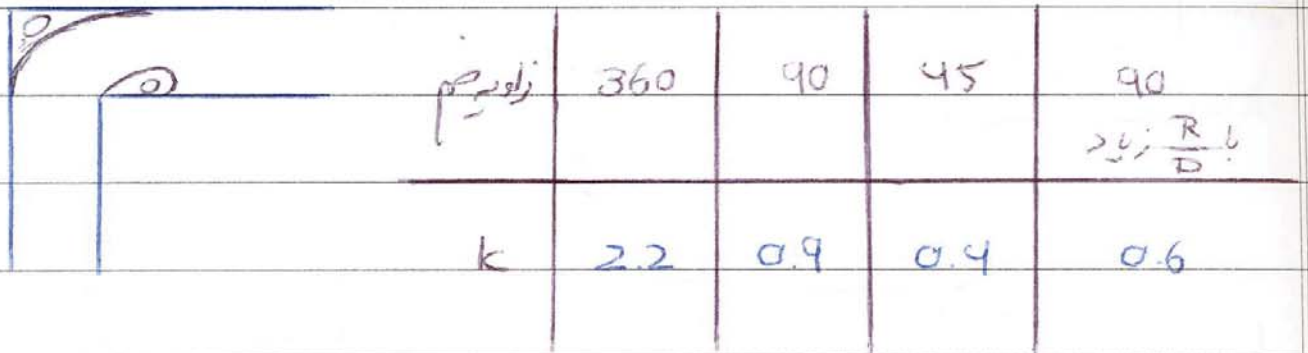 زاویه خم 360 90 45 90
با R/D زیاد
k 2.2 0.9 0.4 0.6